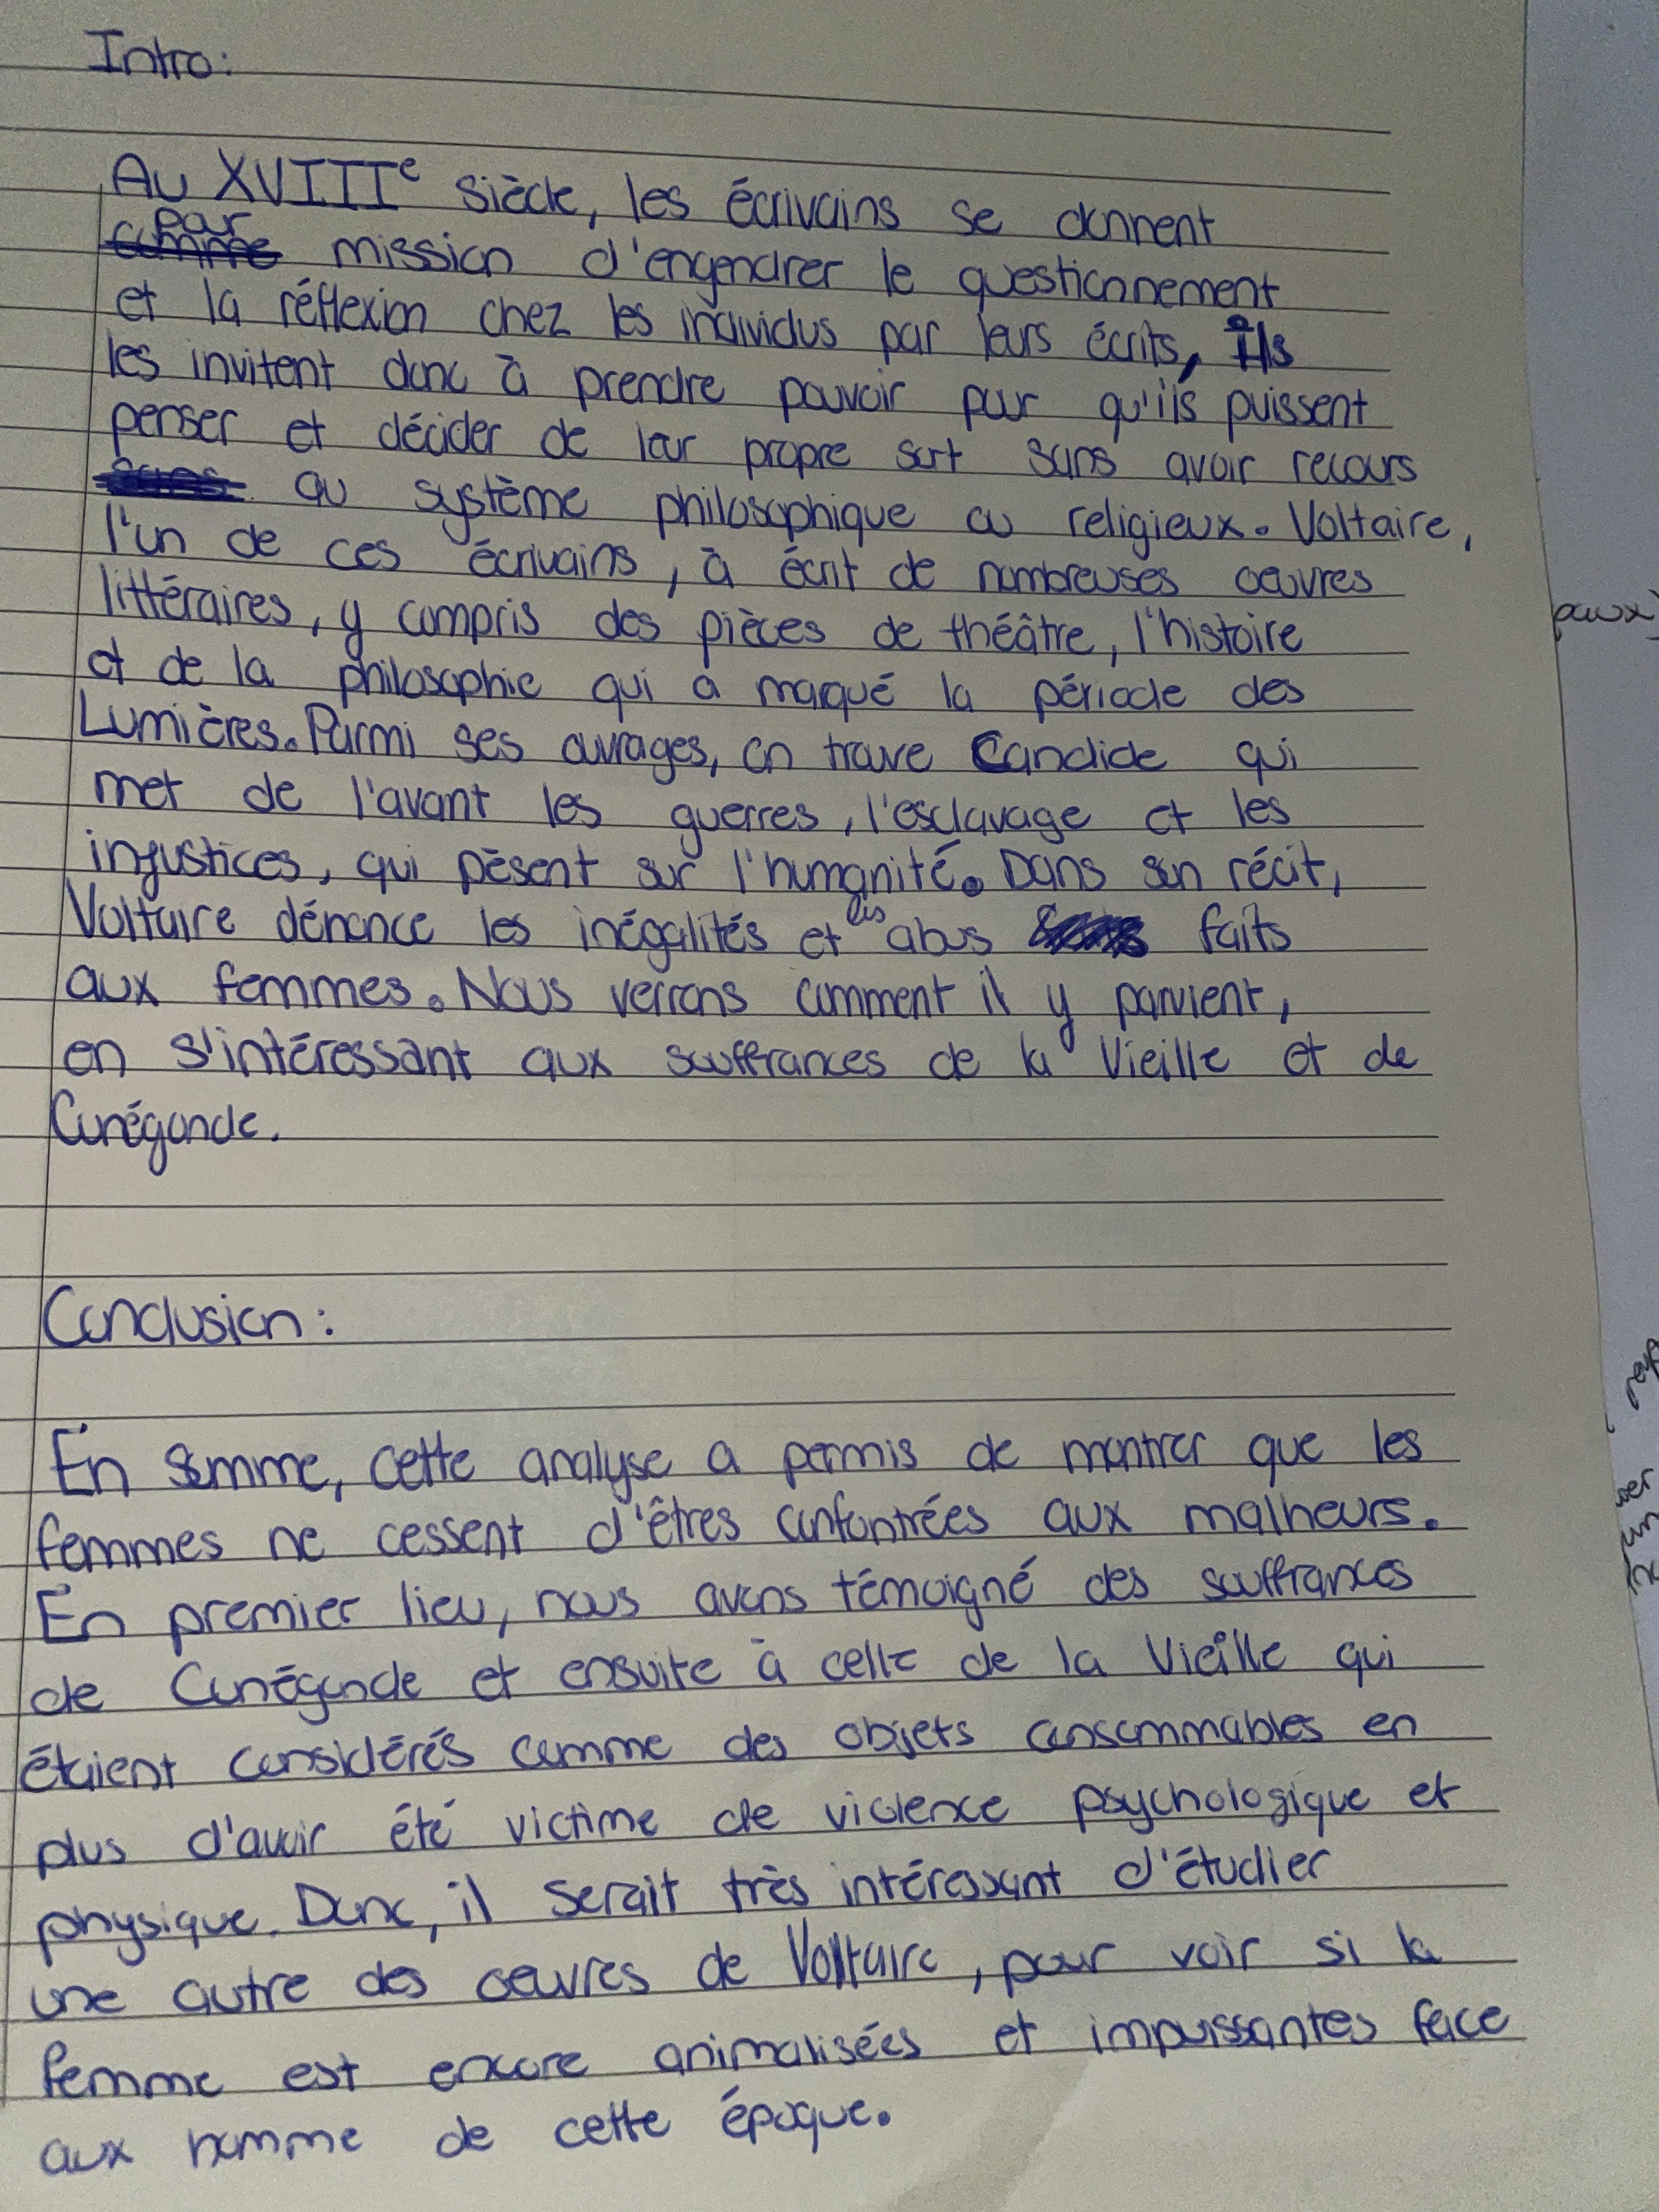 Intro:
Au XVIIIe siècle, les écrivains se donnent
par
comme mission d'engendrer le questionnement
et la réflexion chez les individus par leurs écrits, ils
les invitent donc à prendre pouvoir pour qu'ils puissent
penser et décider de leur propre sort sans avoir recours
au système philosophique ou religieux. Voltaire,
l'un de ces écrivains, à écrit de nombreuses oeuvres
littéraires, y compris des pièces de théâtre, l'histoire
et de la philosophie qui a marqué la période des
Lumières. Parmi ses ouvrages, on trouve Candide qui
met de l'avant les guerres, l'esclavage et les
injustices, qui pèsent sur l'humanité. Dans son récit,
Voltaire dénonce les inégalités et les abus faits
aux femmes. Nous verrons comment il y parvient,
en s'intéressant aux souffrances de la Vieille et de
Cunégonde.
Conclusion :
En somme, cette analyse a permis de montrer que les
femmes ne cessent d'êtres confontrées aux malheurs.
En premier lieu, nous avons témoigné des souffrances
de Cunégonde et ensuite à celle de la Vieille qui
étaient considérés comme des objets consommables en
plus d'avoir été victime de violence psychologique et
physique. Donc, il serait très intéressant d'étudier
une autre des oeuvres de Voltaire, pour voir si la
femme est encore animalisées et impuissantes face
aux homme de cette époque.